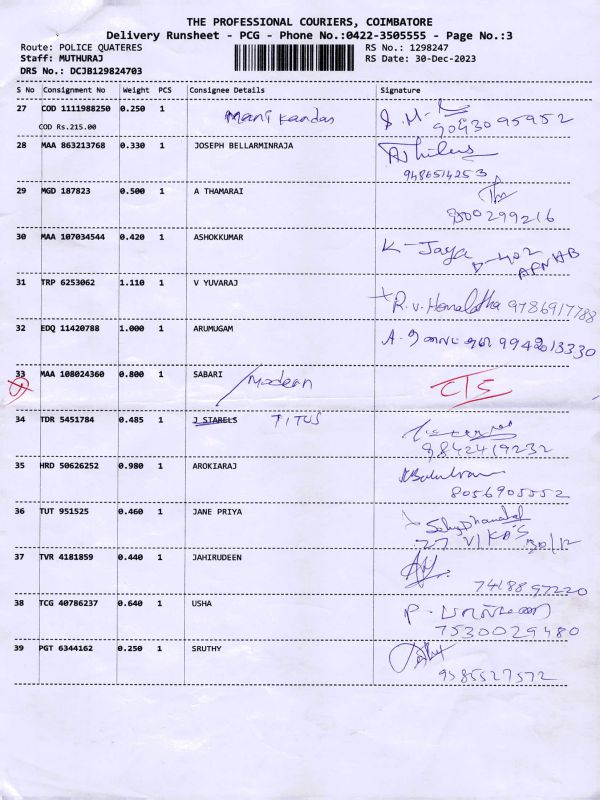 THE PROFESSIONAL COURIERS, COIMBATORE
Delivery Runsheet - PCG - Phone No.:0422-3505555 - Page No.:3
Route: POLICE QUATERES RS No.: 1298247
Staff: MUTHURAJ RS Date: 30-Dec-2023
DRS No.: DCJB129824703
S No Consignment No Weight PCS Consignee Details Signature
27 COD 1111988250 0.250 1 Manikandas
COD Rs.215.00 9043095952
28 MAA 863213768 0.330 1 JOSEPH BELLARMINRAJA
9486514253
29 MGD 187823 0.500 1 A THAMARAI
800299216
30 MAA 107034544 0.420 1 ASHOKKUMAR K - Jaya
D-402
31 TRP 6253062 1.110 1 V YUVARAJ
R.V. Hemalatha 9786917788
32 EDQ 11420788 1.000 1 ARUMUGAM
33 MAA 108024360 0.800 1 SABARI Modern CTS
34 TDR 5451784 0.485 1 J STARELS TITUS
9842419232
35 HRD 50626252 0.980 1 AROKIARAJ
8056905552
36 TUT 951525 0.460 1 JANE PRIYA
30/12
37 TVR 4181859 0.440 1 JAHIRUDEEN
7418897220
38 TCG 40786237 0.640 1 USHA
7530029480
39 PGT 6344162 0.250 1 SRUTHY
9585527572